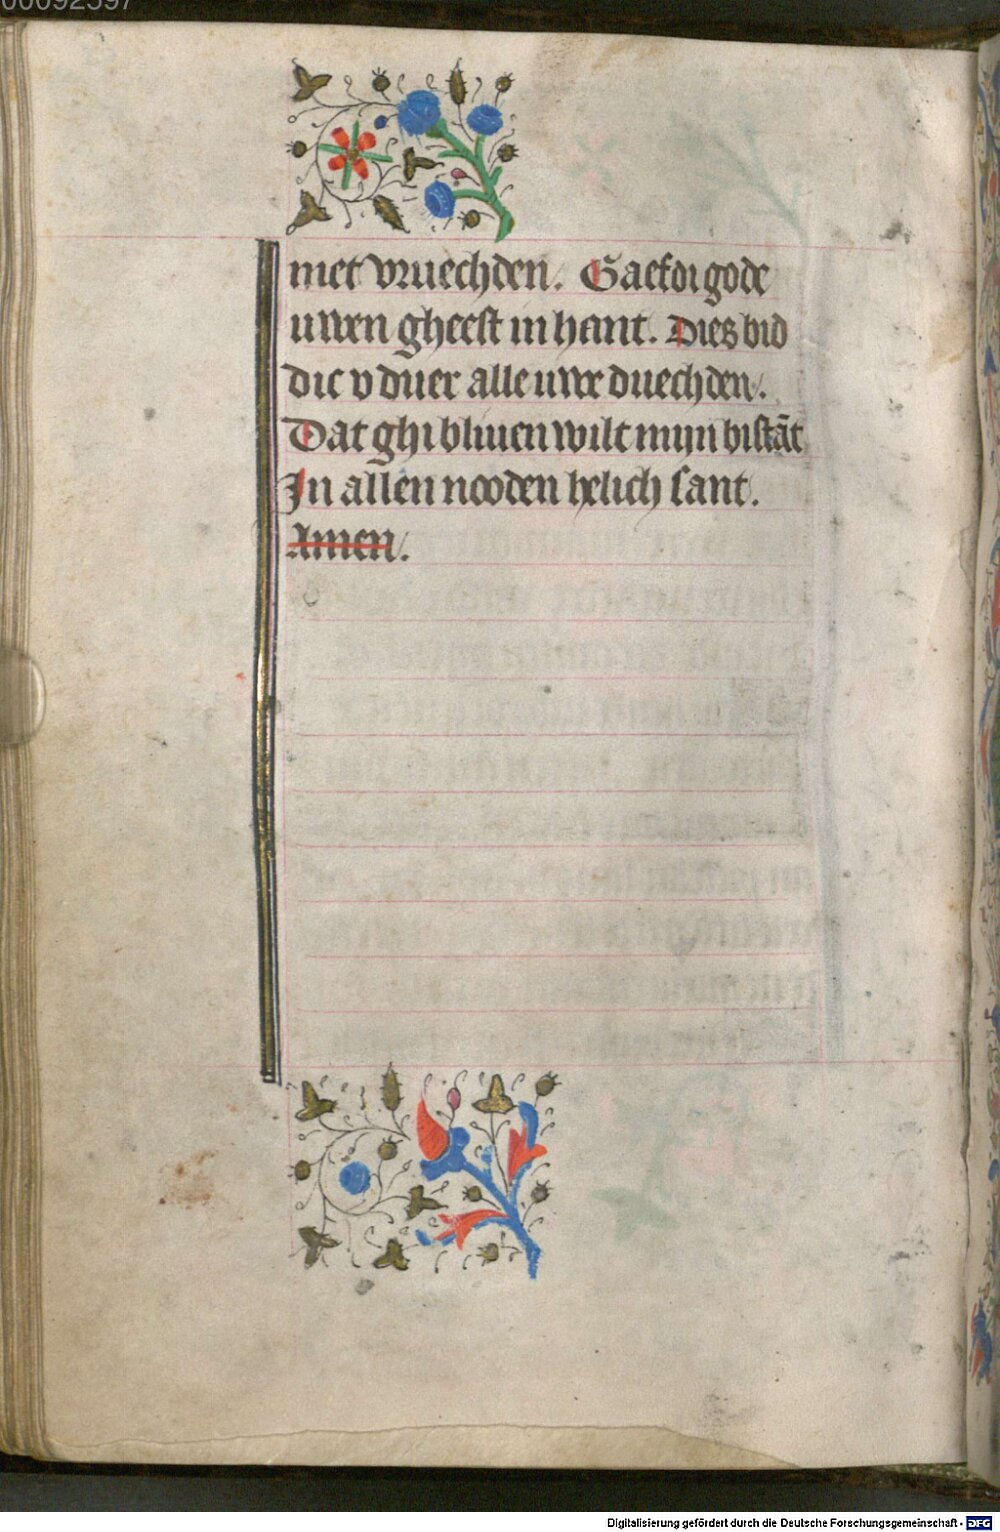 00092397
met vruechden. Gaefdi gode
uwen gheest in hant. Dies bid
dic v duer alle uwe duechden.
Dat ghi bliuen wilt mijn bistāt
In allen nooden helich sant.
Amen.
Digitalisierung gefördert durch die Deutsche Forschungsgemeinschaft - DFG